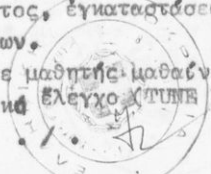 τος, ἐγκαταστάσε
ων.
ε μαθητής μαθαίν
κά ἔλεγχο (TUNE
./.